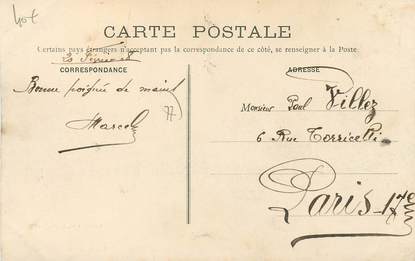 40€
CARTE POSTALE
Certains pays étrangers n'acceptant pas la correspondance de ce côté, se renseigner à la Poste
CORRESPONDANCE
ADRESSE
Bonne poignée de mains
Marcel
77
Monsieur Paul Villez
6 Rue Torricelli
Paris-17e